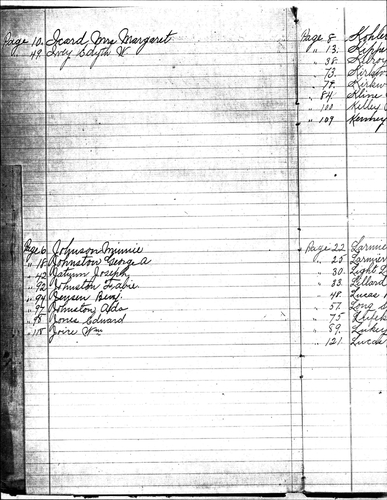 Page 10. Icard Mrs Margaret.
" 49. Ivey Edyth W
Page 6. Johnson Minnie
" 18 Johnston George A
" 42 Tatum Joseph
" 92 Johnston
" 94 Ben.
" 97 Johnston Ada
" 98 Jones Edward
" 118 Joire Wm
Page 8. Kohler
" 13. Keppe
" 38. Kilroy
" 73.
" 79. Kirkw
" 84. Kline
" 100 Kelley
" 109 Kenney
Page 22. Larmie
" 25 Larmier
" 30. Light
" 33. Lillard
" 48. Lucas
" 57. Long
" 75
" 89. Luker
" 121. Lucas